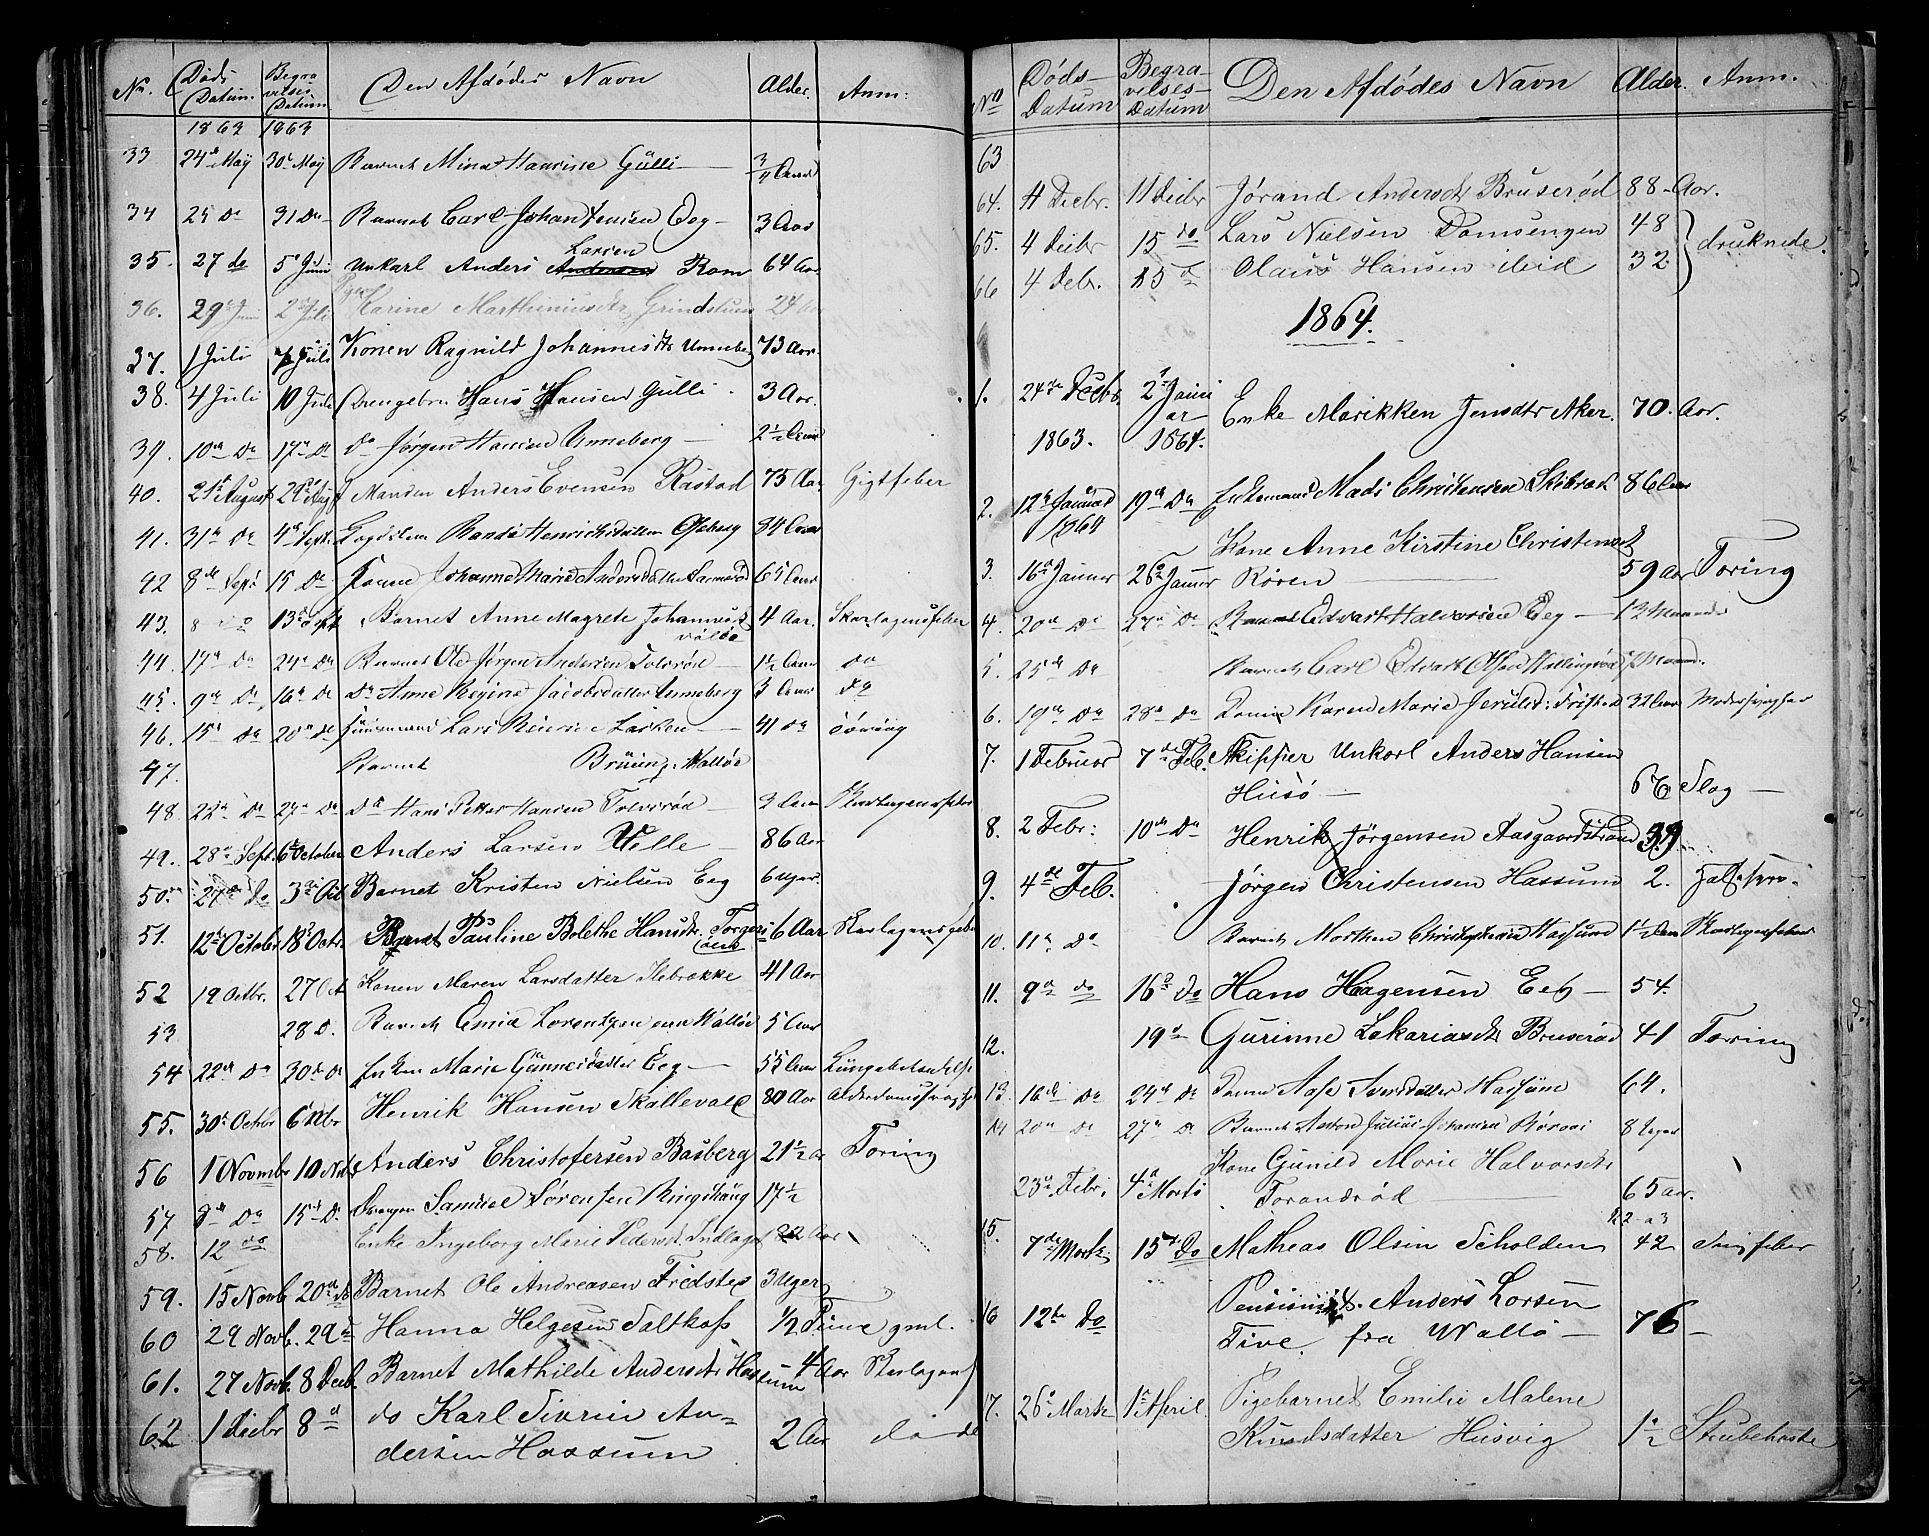 No. Døds Datum. Begravelses Datum Den Afdødes Navn Alder. Anm:
1863 1863
33 24d May 30t May Barnet Mina Hansine Gülli 3/4 Aar
34 25 Do 31 Do Barnet Carl Johan Jensen Eeg 3 Aar
Larsen
35. 27 do 5t Juni Unkarl Anders Andersen Rom 64 Aar
36. 29 Juni 2 Juli Pigen Karine Marthiniusdtr 24 Aar
37. 1 Juli 7 Juli Konen Ragnild Johannesdtr Unneberg 73 Aar.
38. 4 Juli 10 Juli Drengebrn Hans Hansen Gulli 3 Aar.
39. 10de Do 17de Do Do Jørgen Hansen Unneberg 2½ Aar
40. 21 August 29 Augst Manden Anders Evensen Råstad 75 Aar Gigtfeber
41. 31te Do 4de Sept. Randi Henrichsdatter Oseberg 34 Aar
42 8de Sept 15 Do Konen Johanne Marie Andersdatter 65 Aar
43. 8 Do 13de Sept Barnet Anne Magrete Johannesdt 4 Aar. Skarlagensfeber
Valøe
44. 17de Do 24de Do Barnet Ole Jørgen Andersen Tolvsrød 1½ Aar do
45. 9de Do 16de Do Do Anne Regine Jacobsdatter Unneberg 3 Aar do
46. 15de Do 20de Do Lars 41 do Tæring
47. Barnet Walløe
48 22de Do 27de Do Do Hans Petter Hansen Tolvsrød 3 Aar Skarlagensfeber
49. 28de Sept. 6t October Anders Larsen Velle 86 Aar
50. 27de Do 3die Oct Barnet Kristen Nielsen Eeg 6 Uger.
51. 12te October 18de Octr. Barnet Pauline Bolethe Hansdtr. 6 Aar Skarlagensfeber
52 19 Octbr. 27 Oct Konen Maren Larsdatter Ilebrække 41 Aar
53 28 D. Barnet Walløe 5 Aar
54 22de Do 30te Do Enken Marie Gunnersdatter Eeg 55 Aar Lungebetændelse
55. 30te Octbr 6t Nbr Henrik Hansen Skallevald 80 Aar Alderdomssvaghed
56 1 Novmbr 10 Nvbr Anders Christofersen Basberg 21½ Aar Tæring
57 8de Do 15de Do Drengen Samuel Sørensen Ringshaug 17½
58. 12 do Enke Ingeborg Marie Pedersdt. 82 Aar
59. 15 Novb 20de do Barnet Ole Andreasen Fredsted 3 Uger
60 29 Novb. 29de Hanna Helgesen Saltkofs ½ Time gml.
61. 27 Novb. 8 Decb. Barnet Mathilde Andersdtr Hassum 4 Aar Skarlagensf
62 1 Decbr 8d do Karl An-
dersen Hassum 2 Aar do do
No Døds-Datum Begravelses-Datum Den Afdødes Navn Alder. Anm.
63
64. 4 Decbr. 11 Decbr Jørand Andersdtr Bruserød 88 Aar.
65. 4 Decbr 15 do Lars Nielsen Damsengen 48
druknede.
66 4 Debr. 15d Olaus Hansen ibid 32
1864.
1. 24de Decbr. 2den Janu
ar
Enke Marikken Jensdtr Aker. 70. Aar.
1863. 1864.
2. 12te Januar 19de Do Enkemand Mads Christensen 86 Aar
1864
Kone Anne Kirstine Christensdt
3. 16de Januar 26de Januar Røren 59 Aar Tæring
4. 20de Do 27de Do Barnet Edvart Halvorsen Eeg 13 Maaneder
5. 25de Do Barnet Carl Edvart Olsen
6. 19de Do 28de Do Konen Karen Marie 32 Aar
7. 1 Februar 7de Feb. Skipper Unkarl Anders Hansen
Husø 67 Slag
8. 2 Febr: 10de Do Henrik Jørgensen Aasgaardstrand 39.
9. 4de Feb. Jørgen Christensen Hassum 2.
10. 11te Do Barnet Morthen Hassum 1½ Aar Skarlagensfeber
11. 9de do 16de Do Hans Hagensen Eeb 54.
12. 19d Gurinne Zakariasdtr Bruserød 41 Tæring
13. 16de Do 24de Do Konen Aase Iversdatter Hassum 64.
14 20de Do 27de Do Barnet Anton Julius Johansen 8 Uger
Kone Gunild Marie Halvorsdtr
23de Febr. 4de Marts Torandrød 65 Aar.
15. 7de Marts 15de Do Mathias Olsen Scholden 42
16 12te Do Anders Larsen
Tive. fra Wallø 76
17. 26de Marts 1ste April Pigebarnet Emilie Malene
Knudsdatter Husvig 1½ Strubehoste